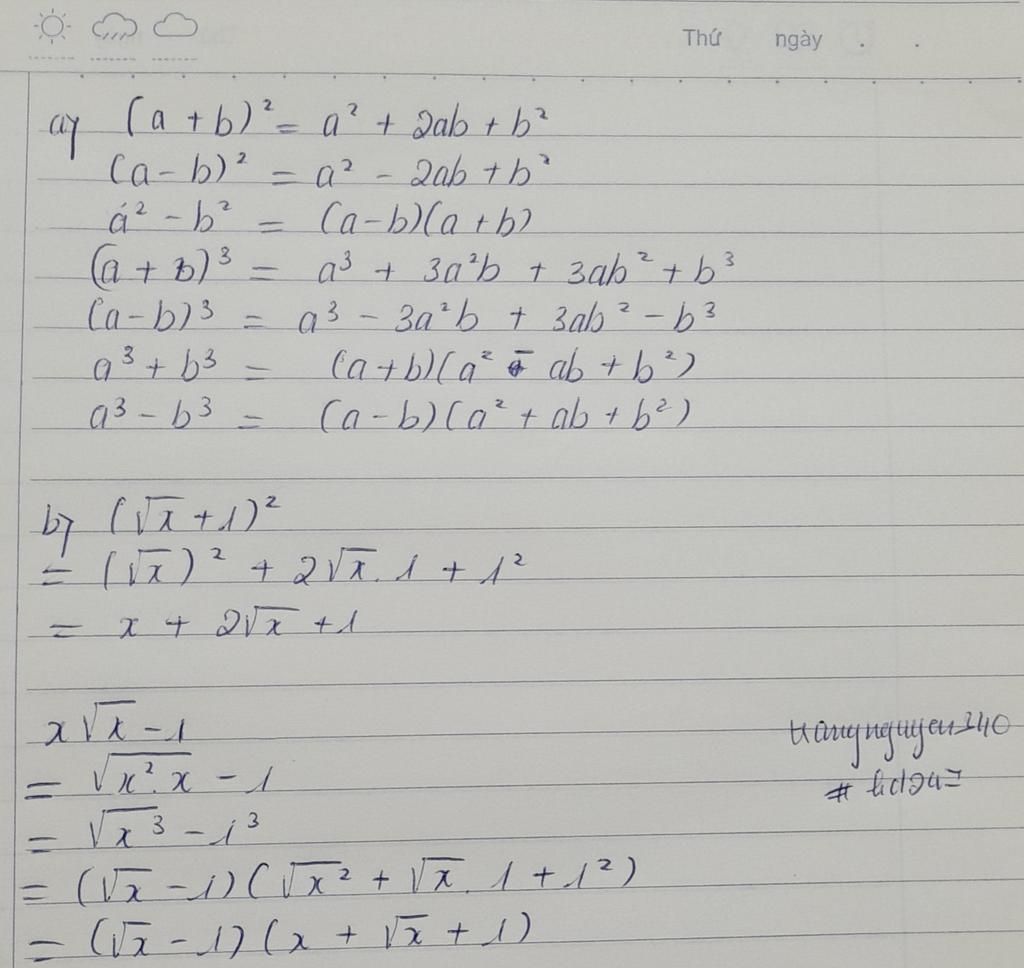 Thứ ngày . .
a) (a + b)² = a² + 2ab + b²
(a - b)² = a² - 2ab + b²
a² - b² = (a - b)(a + b)
(a + b)³ = a³ + 3a²b + 3ab² + b³
(a - b)³ = a³ - 3a²b + 3ab² - b³
a³ + b³ = (a + b)(a² - ab + b²)
a³ - b³ = (a - b)(a² + ab + b²)
b) (√x + 1)²
= (√x)² + 2√x . 1 + 1²
= x + 2√x + 1
x√x - 1
= √(x² . x) - 1
= √x³ - 1³
= (√x - 1)(√x² + √x . 1 + 1²)
= (√x - 1)(x + √x + 1)